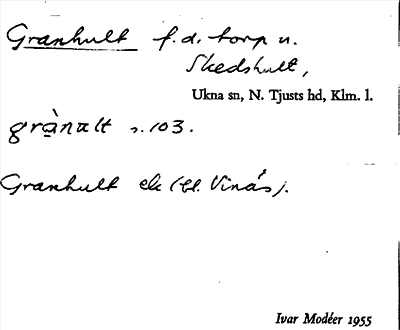 Granhult f.d. torp u.
Skedshult,
Ukna sn, N. Tjusts hd, Klm. l.
grànalt s. 103.
Granhult ek (bl. Vinäs).
Ivar Modéer 1955